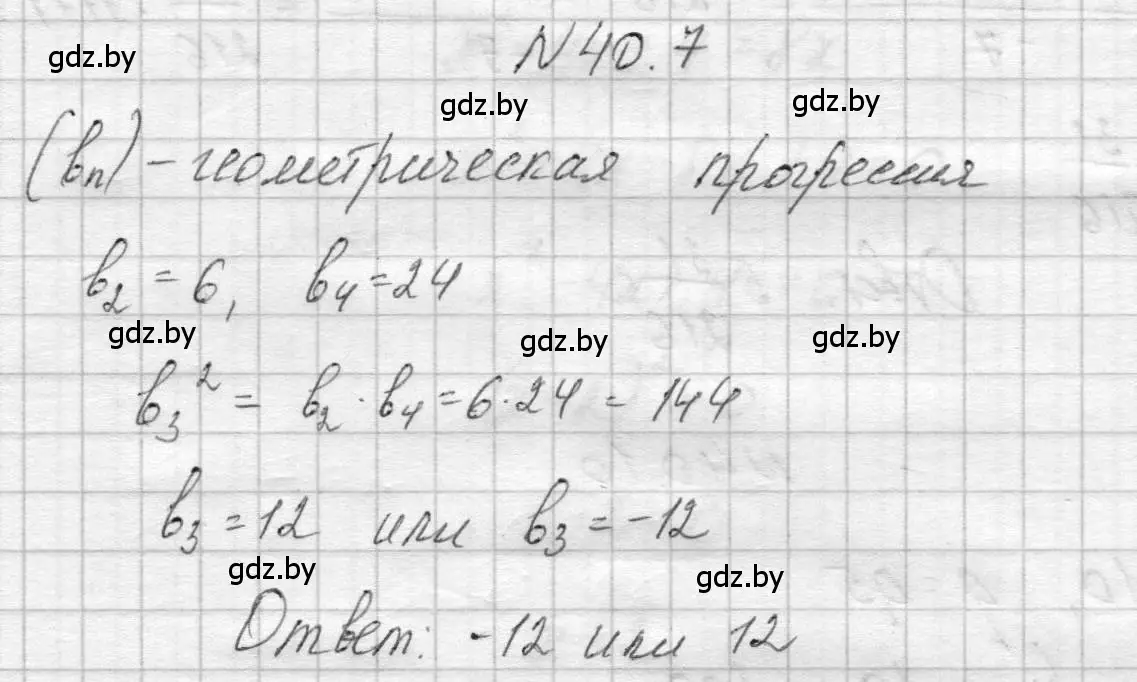 N 40.7
gdz.by
gdz.by gdz.by
(bn) - геометрическая прогрессия
b₂ = 6, b₄ = 24
gdz.by gdz.by gdz.by
b₃² = b₂ · b₄ = 6 · 24 = 144
b₃ = 12 или b₃ = -12
gdz.by gdz.by
Ответ: -12 или 12